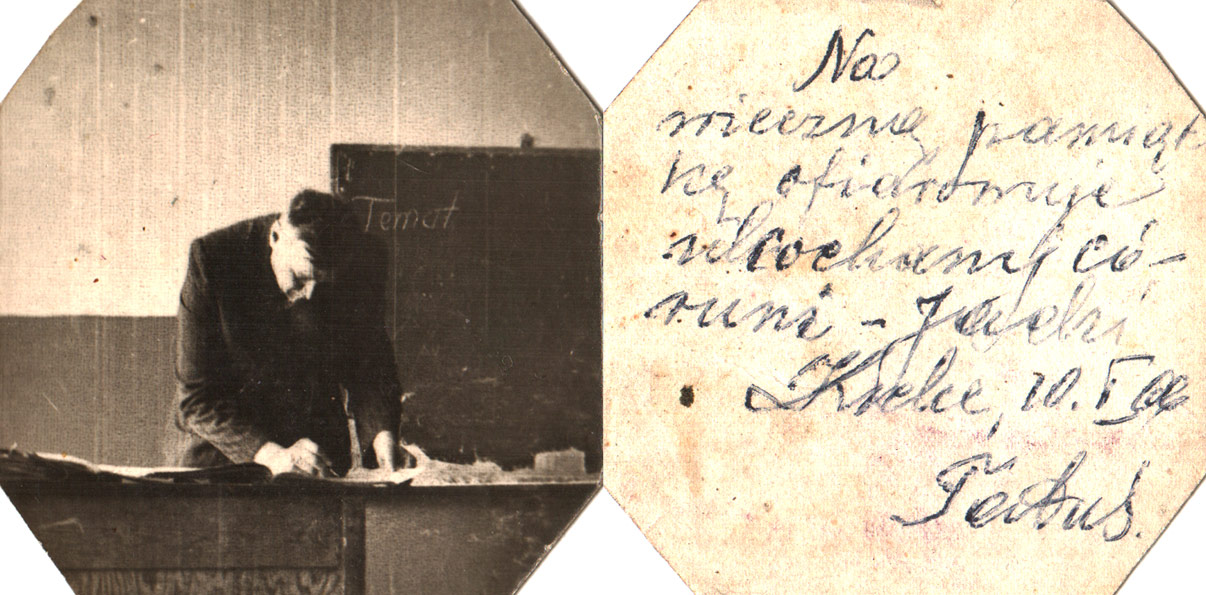 Temat
Na
wieczną pamiąt
kę ofiaruje
ukochanej có-
runi - Jadzi
10.
Tatuś.